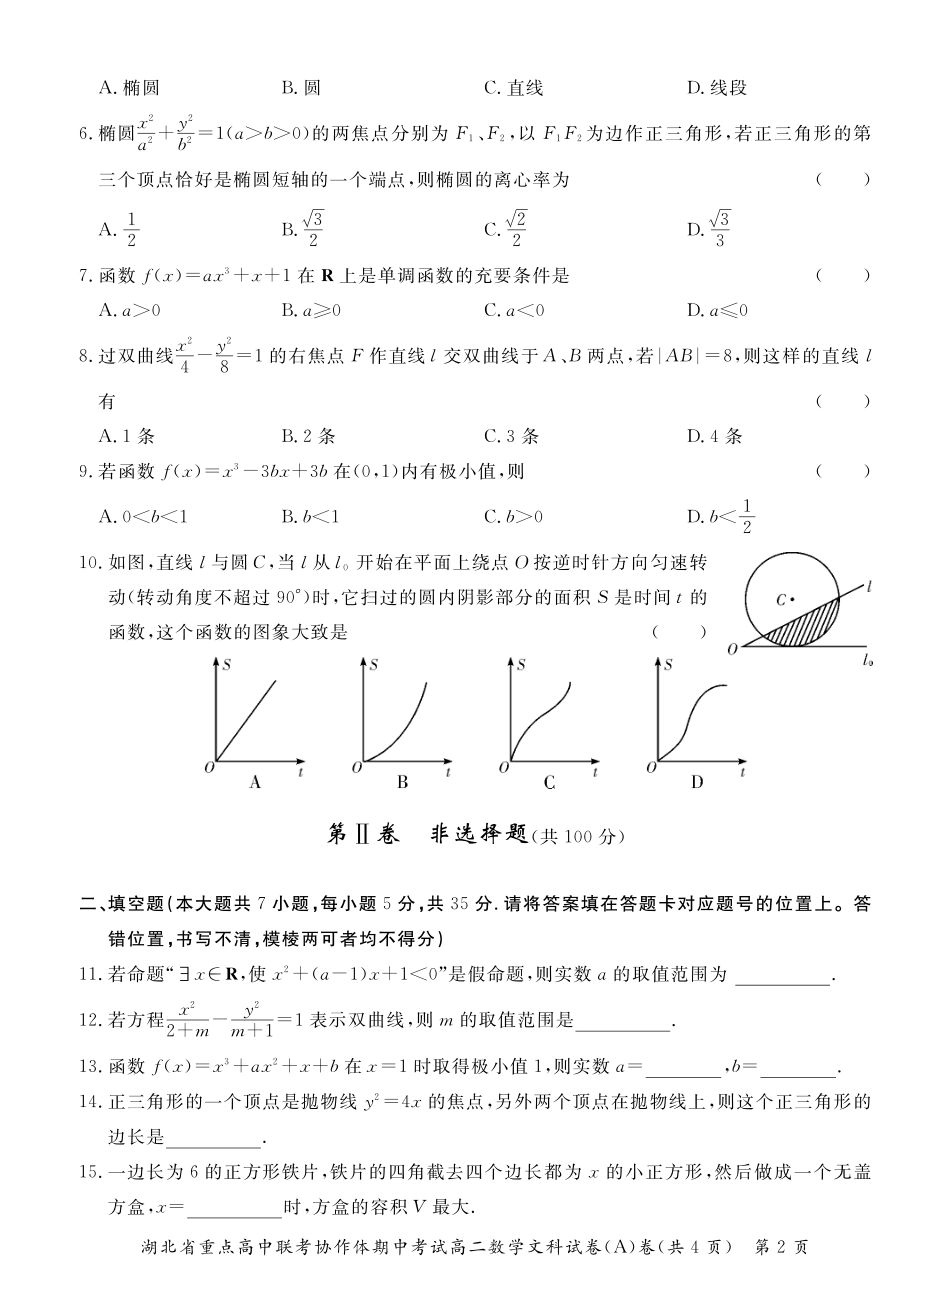 A. 椭圆 B. 圆 C. 直线 D. 线段
6. 椭圆x²/a²+y²/b²=1(a>b>0)的两焦点分别为 F₁、F₂,以 F₁F₂为边作正三角形,若正三角形的第
三个顶点恰好是椭圆短轴的一个端点,则椭圆的离心率为 ( )
A. 1/2 B. √3/2 C. √2/2 D. √3/3
7. 函数 f(x)=ax³+x+1 在 R 上是单调函数的充要条件是 ( )
A. a>0 B. a≥0 C. a<0 D. a≤0
8. 过双曲线x²/4-y²/8=1 的右焦点 F 作直线 l 交双曲线于 A、B 两点,若|AB|=8,则这样的直线 l
有 ( )
A. 1 条 B. 2 条 C. 3 条 D. 4 条
9. 若函数 f(x)=x³-3bx+3b 在(0,1)内有极小值,则 ( )
A. 0<b<1 B. b<1 C. b>0 D. b<1/2
10. 如图,直线 l 与圆 C,当 l 从 l₀ 开始在平面上绕点 O 按逆时针方向匀速转
动(转动角度不超过 90°)时,它扫过的圆内阴影部分的面积 S 是时间 t 的
函数,这个函数的图象大致是 ( )
C l
O l₀
S S S S
O t O t O t O t
A B C D
第Ⅱ卷 非选择题(共 100 分)
二、填空题(本大题共 7 小题,每小题 5 分,共 35 分. 请将答案填在答题卡对应题号的位置上。答
错位置,书写不清,模棱两可者均不得分)
11. 若命题“∃x∈R,使 x²+(a-1)x+1<0”是假命题,则实数 a 的取值范围为 ________.
12. 若方程x²/(2+m)-y²/(m+1)=1 表示双曲线,则 m 的取值范围是________.
13. 函数 f(x)=x³+ax²+x+b 在 x=1 时取得极小值 1,则实数 a=______,b=______.
14. 正三角形的一个顶点是抛物线 y²=4x 的焦点,另外两个顶点在抛物线上,则这个正三角形的
边长是________.
15. 一边长为 6 的正方形铁片,铁片的四角截去四个边长都为 x 的小正方形,然后做成一个无盖
方盒,x=________时,方盒的容积 V 最大.
湖北省重点高中联考协作体期中考试高二数学文科试卷(A)卷(共 4 页) 第 2 页